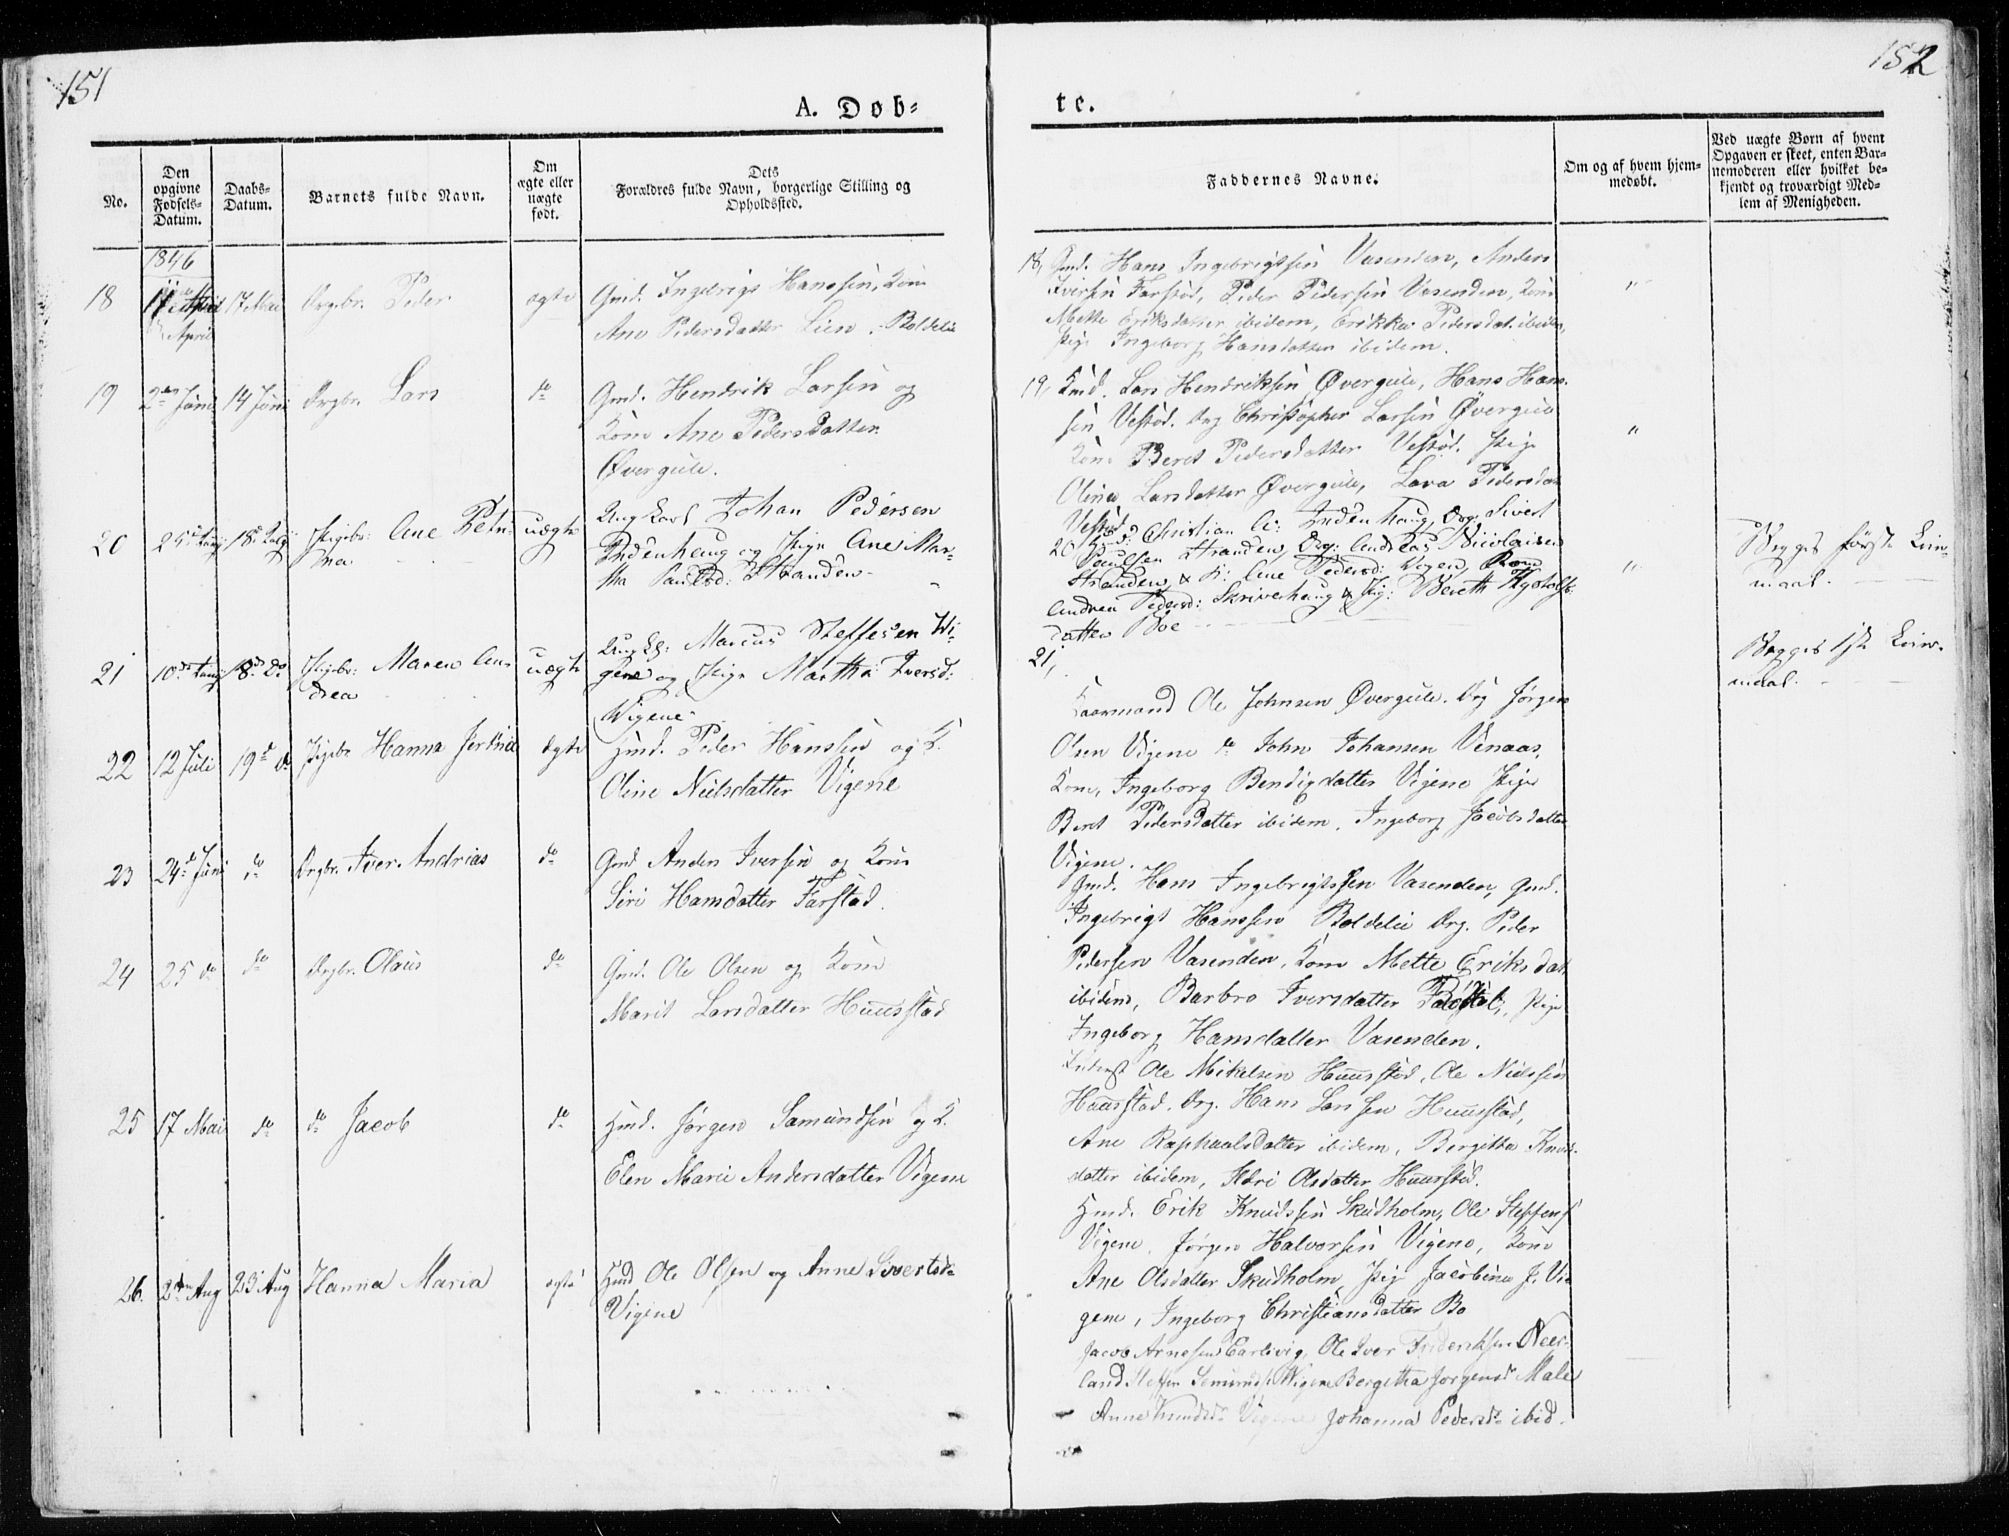 151
A. Døb-
No.
Den opgivne Fødsels-Datum.
Daabs-Datum.
Barnets fulde Navn.
Om ægte eller uægte født.
Dets Forældres fulde Navn, borgerlige Stilling og Opholdssted.
1846
18 April 17 Mai Drgbr. Peder ægte Gmd. Ingebrigt Hanssen, Kone
Ane Pedersdatter Lien. Boldelie
19 2den Juni 14 Juni Drgbr. Lars do Gmd. Hendrik Larsen og
Kone Ane Pedersdatter
Øvergule.
20 25d 18d Pigeb: Ane Petri- uægte Ung Karl Johan Pedersen
nea Indenhaug og Pige Ane Mar-
tha Paulsd: Stranden
21 10de 18d Do Pigeb: Maren An- uægte Ung K: Marcus Steffesen Wi-
drea gene og Pige Martha Iversd:
Wigene
22 12 Juli 19d do Pigebr Hanna Jertine ægte Hmd. Peder Hanssen og K.
Oline Nielsdatter Vigene
23 24d Juni do Drgbr. Iver Andrias do Gmd Anders Iversen og Kone
Siri Hansdatter Farstad.
24 25 do do Drgbr. Olaus do Gmd. Ole Olsen og Kone
Marit Larsdatter Huusstad
25 17 Mai do do Jacob do Hmd. Jørgen Samundsen og K.
Elen Marie Andersdatter Vigene
26. 2den Aug 23 Aug Hanna Maria ægte Hmd Ole Olsen og Anne Sivertsd
Vigene
152
te.
Faddernes Navne.
Om og af hvem hjem-
medøbt.
Ved uægte Børn af hvem
Opgaven er skeet, enten Bar-
nemoderen eller hvilket be-
kjendt og troværdigt Med-
lem af Menigheden.
18, Gmd. Hans Ingebrigtsen Vasenden, Anders
Iversen Farstad, Peder Pedersen Vasenden, Kone "
Mette Eriksdatter ibidem, Erikka Pedersdat. ibidem,
Pige Ingeborg Hansdatter ibidem.
19, Kmd. Lars Hendriksen Øvergule, Hans Hans-
sen Vestad. Drg Christopher Larsen Øvergule "
Kone Beret Pedersdatter Vestad. Pige
Olina Larsdatter Øvergule, Lava Pedersdat
Vestad.
20 Christian A: Indenhaug, Drg: Sivert
Paulsen Stranden, Drg: Andreas Nicolaisen "
Stranden, & K: Ane Pedersd: Wogen, Kone
Andrea Pedersd: Skriverhaug & Pig: Bereth
datter Boe
Begges første Leir-
maal.
21,
Begges 1ste Leir-
maal.
Kaarmand Ole Johnsen Øvergule. Drg Jørgen
Olsen Vigene do John Johansen Venaas,
Kone, Ingeborg Bendixdatter Vigene Pige
Beret Pedersdatter ibidem, Ingeborg Jacobsdatter
Vigene.
Gmd. Hans Ingebrigtssen Vasenden, Gmd.
Ingebrigt Hanssen Boldelie Drg. Peder
Pedersen Vasenden, Kone Mette Eriksdat
ibidem, Barbro Iversdatter Pige
Ingeborg Hansdatter Vasenden.
Ole Mikelsen Huusstad, Ole Nielssen
Huusstad, Drg. Hans Larssen Huusstad,
Ane Raphaelsdatter ibidem, Bergitta Knuds-
datter ibidem, Olsdatter Huusstad.
Hmd. Erik Knudssen Skudholm, Ole Steffens
Vigene, Jørgen Halvorsen Vigene, Kone
Ane Olsdatter Skudholm, Pige Jacobine J. Vi-
gene, Ingeborg Christiansdatter Bo
Jacob Arnesen Ole Iver Frideriksen Nees-
land Steffen Wigene Bergitha Jørgensd Male
Anne Knudsd Vigene Johanna Pedersd ibid.